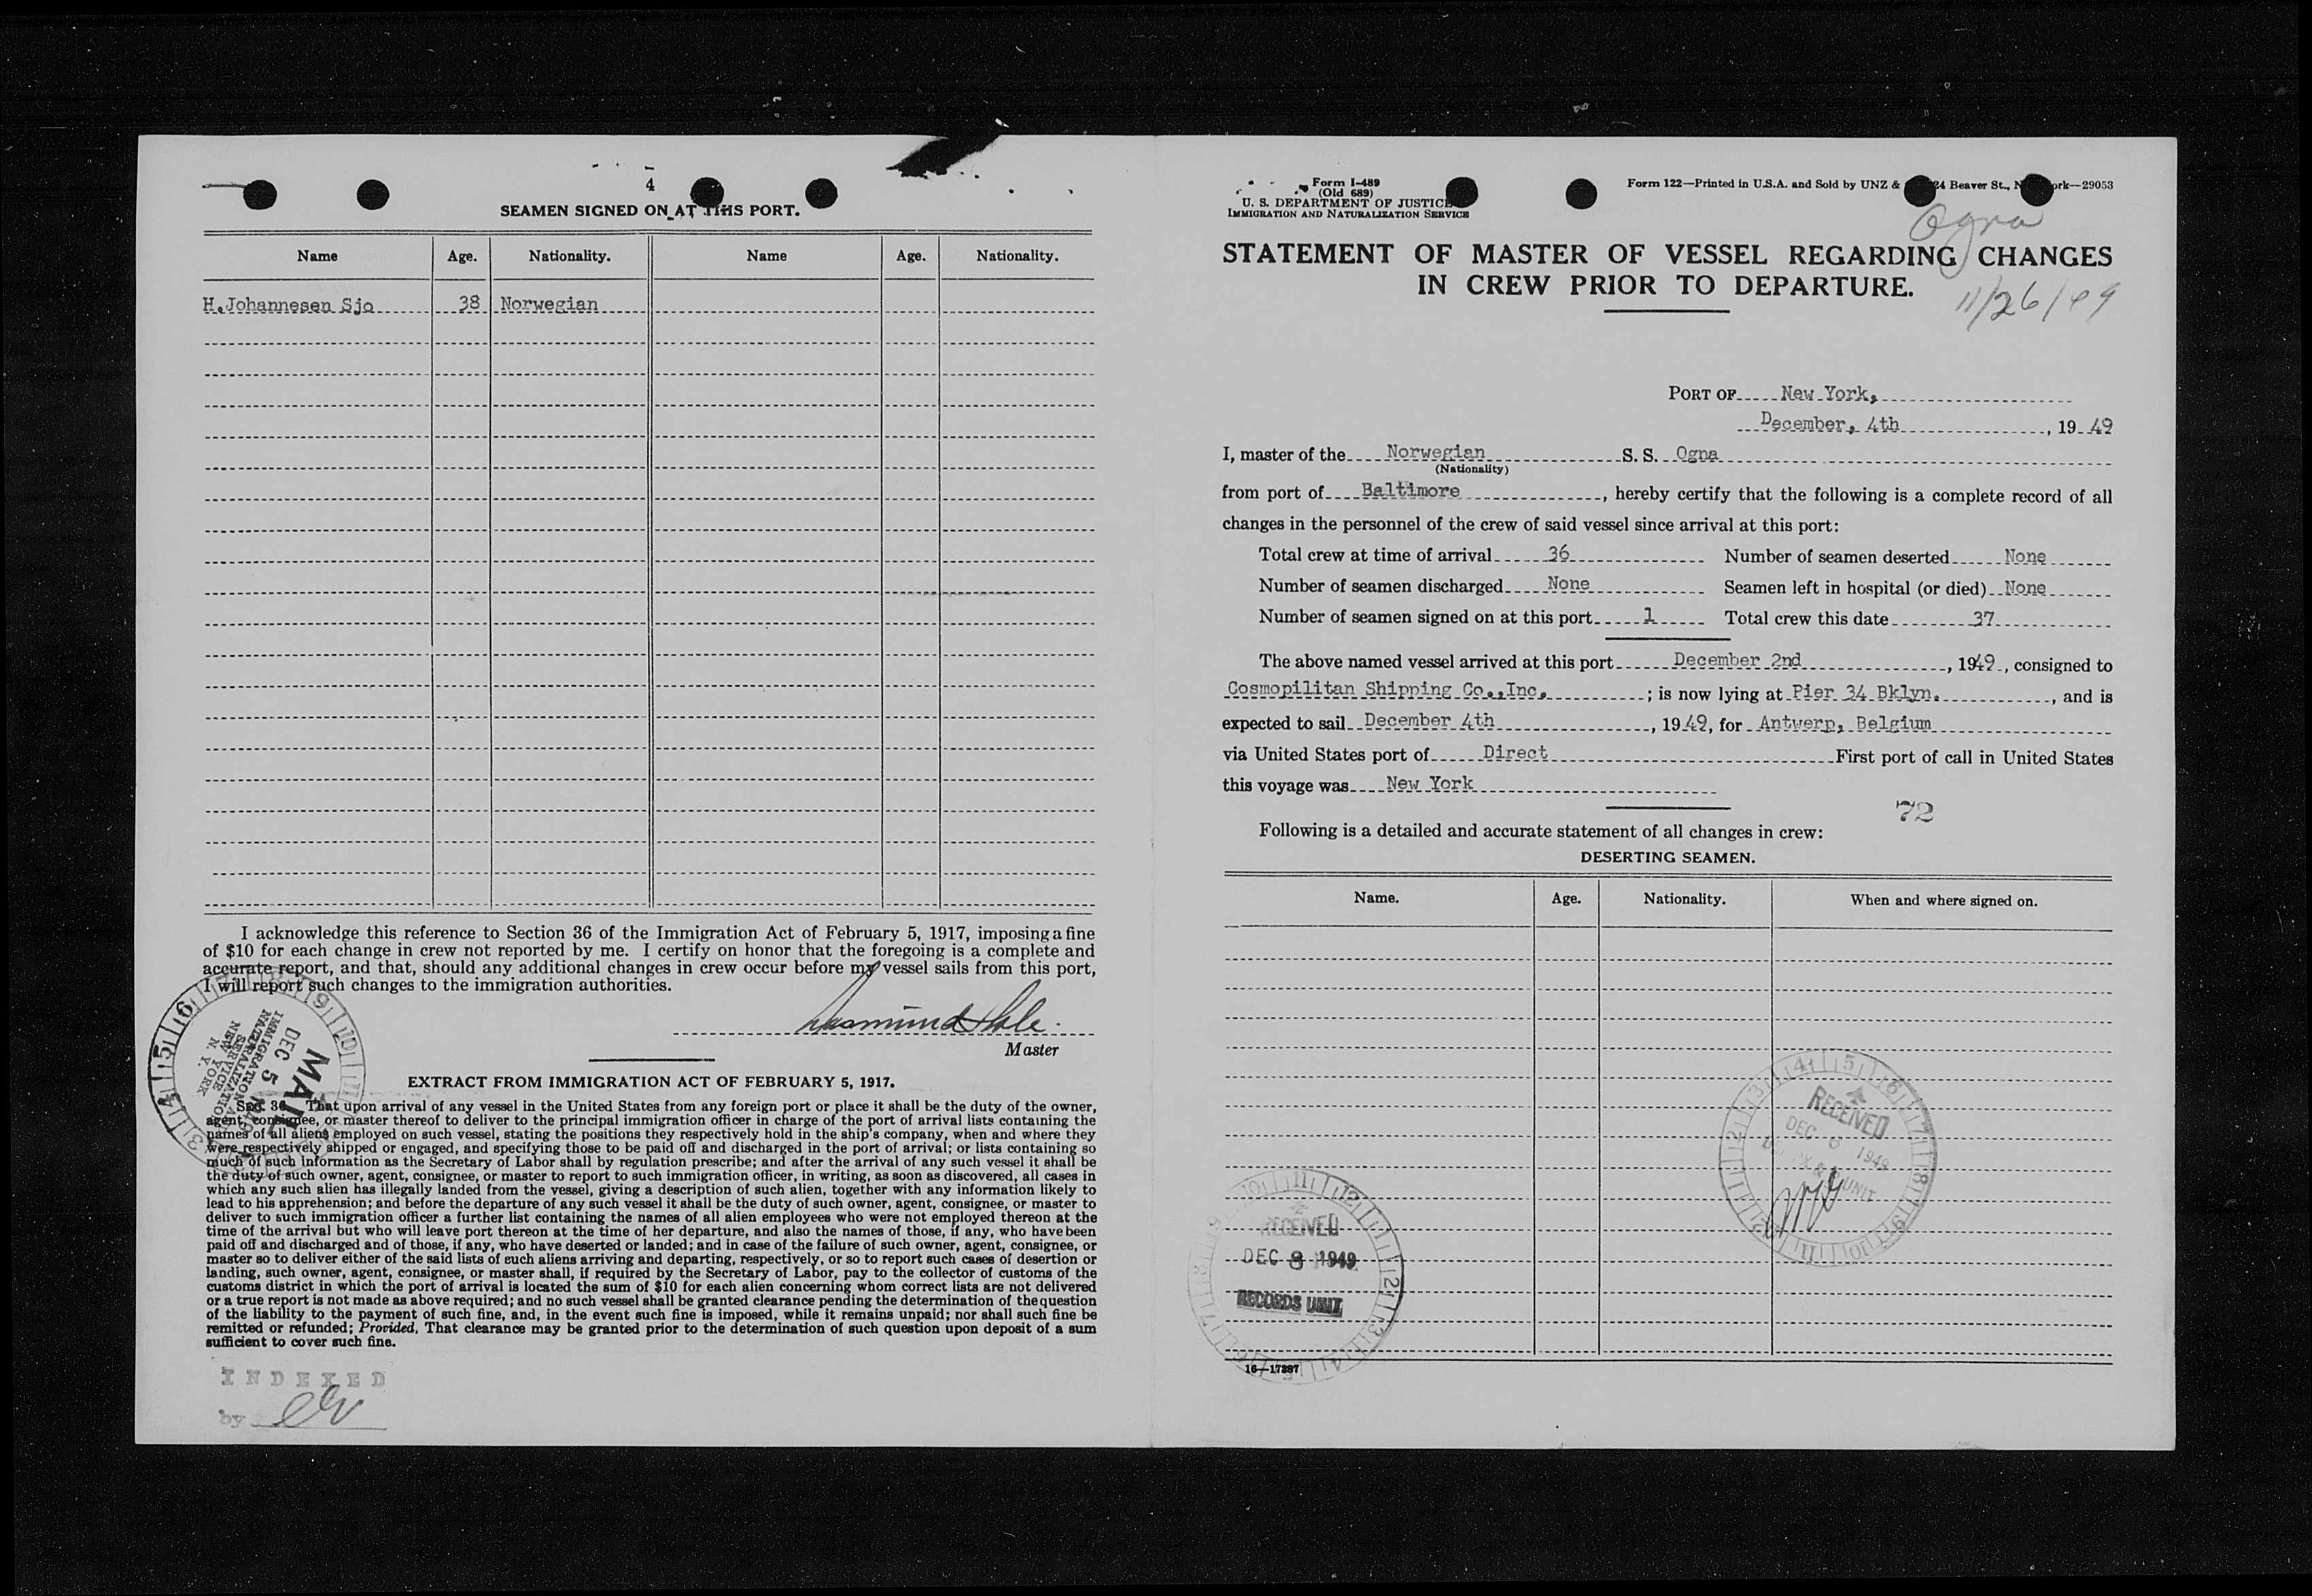 4
SEAMEN SIGNED ON AT THIS PORT.
Name Age. Nationality. Name Age. Nationality.
H.Johannesen Sjo 38 Norwegian
I acknowledge this reference to Section 36 of the Immigration Act of February 5, 1917, imposing a fine
of $10 for each change in crew not reported by me. I certify on honor that the foregoing is a complete and
accurate report, and that, should any additional changes in crew occur before my vessel sails from this port,
I will report such changes to the immigration authorities.
Master
MAIL
DEC 5
IMMIGRATION &
NATURALIZATION
SERVICE
NEW YORK
N. Y.
EXTRACT FROM IMMIGRATION ACT OF FEBRUARY 5, 1917.
Sec. 36. That upon arrival of any vessel in the United States from any foreign port or place it shall be the duty of the owner,
agent, consignee, or master thereof to deliver to the principal immigration officer in charge of the port of arrival lists containing the
names of all aliens employed on such vessel, stating the positions they respectively hold in the ship's company, when and where they
were respectively shipped or engaged, and specifying those to be paid off and discharged in the port of arrival; or lists containing so
much of such information as the Secretary of Labor shall by regulation prescribe; and after the arrival of any such vessel it shall be
the duty of such owner, agent, consignee, or master to report to such immigration officer, in writing, as soon as discovered, all cases in
which any such alien has illegally landed from the vessel, giving a description of such alien, together with any information likely to
lead to his apprehension; and before the departure of any such vessel it shall be the duty of such owner, agent, consignee, or master to
deliver to such immigration officer a further list containing the names of all alien employees who were not employed thereon at the
time of the arrival but who will leave port thereon at the time of her departure, and also the names of those, if any, who have been
paid off and discharged and of those, if any, who have deserted or landed; and in case of the failure of such owner, agent, consignee, or
master so to deliver either of the said lists of such aliens arriving and departing, respectively, or so to report such cases of desertion or
landing, such owner, agent, consignee, or master shall, if required by the Secretary of Labor, pay to the collector of customs of the
customs district in which the port of arrival is located the sum of $10 for each alien concerning whom correct lists are not delivered
or a true report is not made as above required; and no such vessel shall be granted clearance pending the determination of the question
of the liability to the payment of such fine, and, in the event such fine is imposed, while it remains unpaid; nor shall such fine be
remitted or refunded; Provided, That clearance may be granted prior to the determination of such question upon deposit of a sum
sufficient to cover such fine.
INDEXED
by
Form I-489
(Old 689)
U. S. DEPARTMENT OF JUSTICE
IMMIGRATION AND NATURALIZATION SERVICE
Form 122—Printed in U.S.A. and Sold by UNZ & 24 Beaver St., N ork—29053
Ogna
STATEMENT OF MASTER OF VESSEL REGARDING CHANGES
IN CREW PRIOR TO DEPARTURE.
11/26/49
PORT OF New York,
December, 4th, 19 49
I, master of the Norwegian S. S. Ogna
(Nationality)
from port of Baltimore, hereby certify that the following is a complete record of all
changes in the personnel of the crew of said vessel since arrival at this port:
Total crew at time of arrival 36 Number of seamen deserted None
Number of seamen discharged None Seamen left in hospital (or died) None
Number of seamen signed on at this port 1 Total crew this date 37
The above named vessel arrived at this port December 2nd, 1949, consigned to
Cosmopilitan Shipping Co.,Inc. ; is now lying at Pier 34 Bklyn. , and is
expected to sail December 4th, 1949, for Antwerp, Belgium
via United States port of Direct First port of call in United States
this voyage was New York
72
Following is a detailed and accurate statement of all changes in crew:
DESERTING SEAMEN.
Name. Age. Nationality. When and where signed on.
RECEIVED
DEC 6 1949
UNIT
RECEIVED
DEC 8 1949
RECORDS UNIT
16—17287